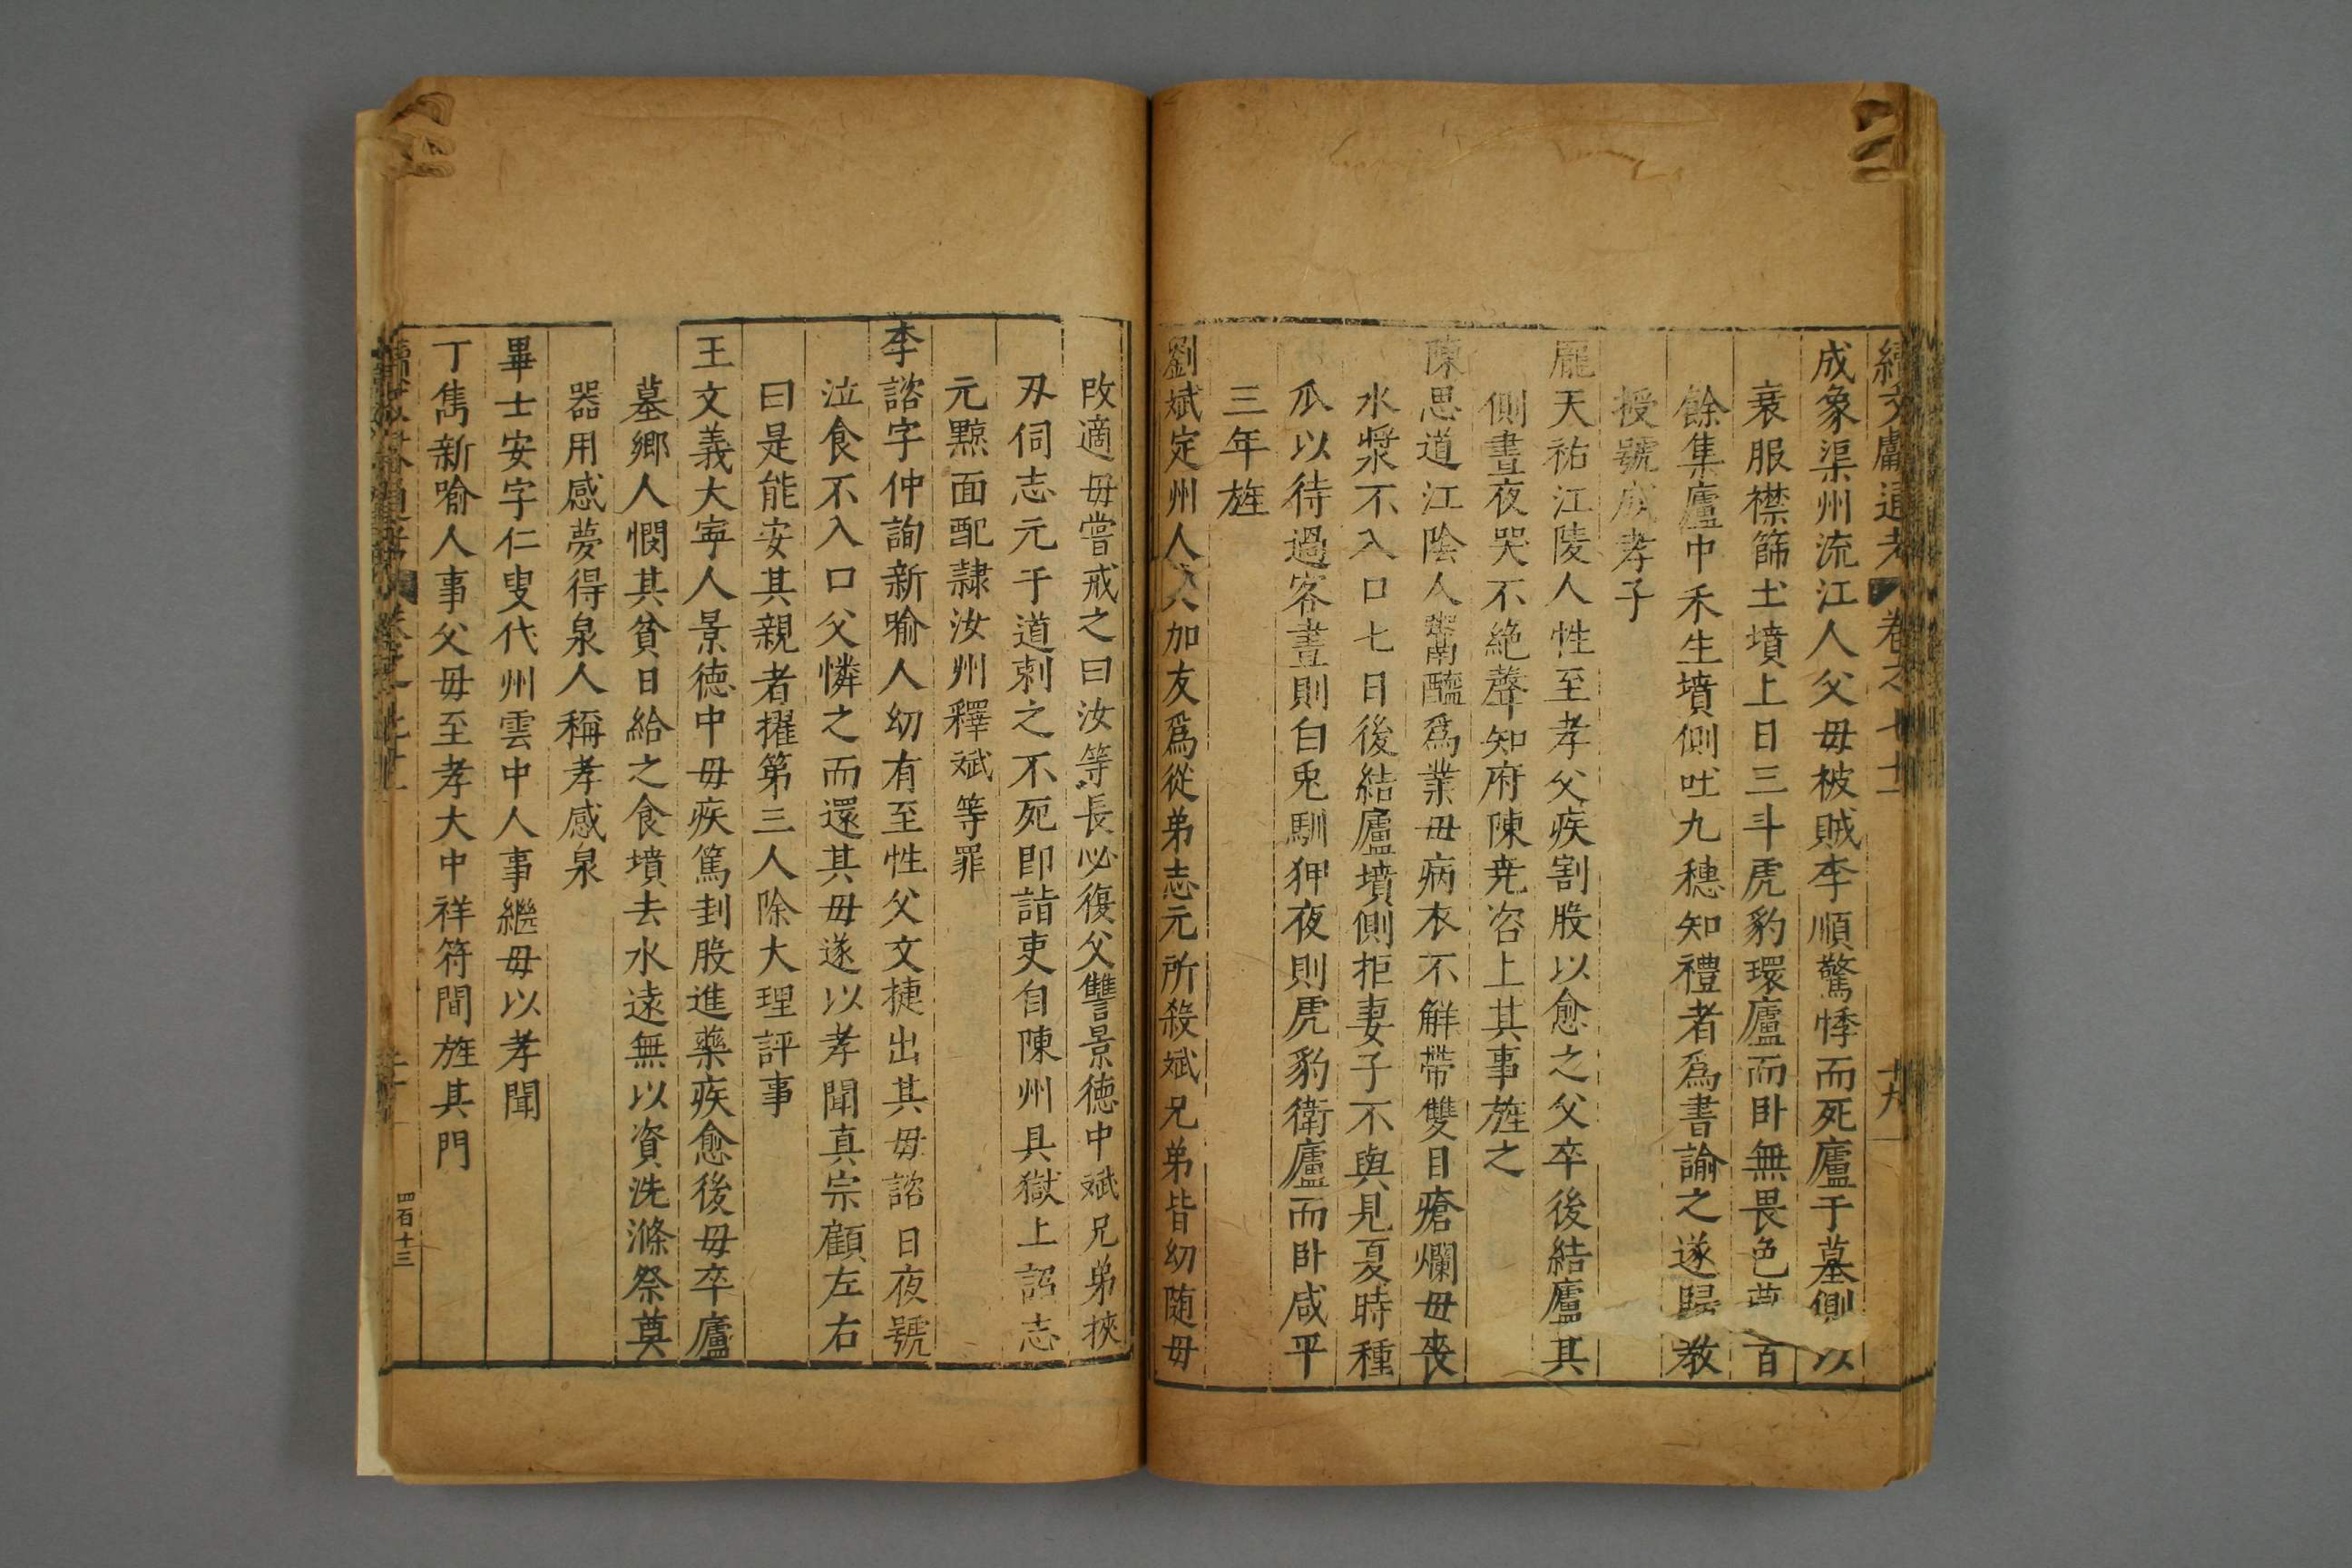 續文獻通考 卷之七十二 十九
成象渠州流江人父毋被賊李順驚悸而死廬于墓側以
衰服襟篩土墳上日三斗虎豹環廬而卧無畏色 百
餘集廬中禾生墳側吐九穗知禮者爲書諭之遂歸教
授號成孝子
龎天祐江陵人性至孝父疾割股以愈之父卒後結廬其
側晝夜哭不絶聲知府陳尭咨上其事旌之
陳思道江陰人鬻醯爲業毋病衣不觧帶雙目瘡爛毋喪
水漿不入口七日後結廬墳側拒妻子不與見夏時種
瓜以待過客晝則白兎馴狎夜則虎豹衛廬而卧咸平
三年旌
劉斌定州人父加友爲從弟志元所殺斌兄弟皆幼随毋
改適毋嘗戒之曰汝等長必復父讐景徳中斌兄弟挾
刄伺志元于道刺之不死即詣吏自陳州具獄上詔志
元黥面配隷汝州釋斌等罪
李諮字仲詢新喻人幼有至性父文捷出其毋諮日夜號
泣食不入口父憐之而還其毋遂以孝聞真宗顧左右
曰是能安其親者擢第三人除大理評事
王文義大寕人景徳中毋疾篤刲股進藥疾愈後毋卒廬
墓鄉人憫其貧日給之食墳去水遠無以資洗滌祭奠
器用感夢得泉人稱孝感泉
畢士安字仁叟代州雲中人事繼毋以孝聞
丁雋新喻人事父毋至孝大中祥符間旌其門
四百十三